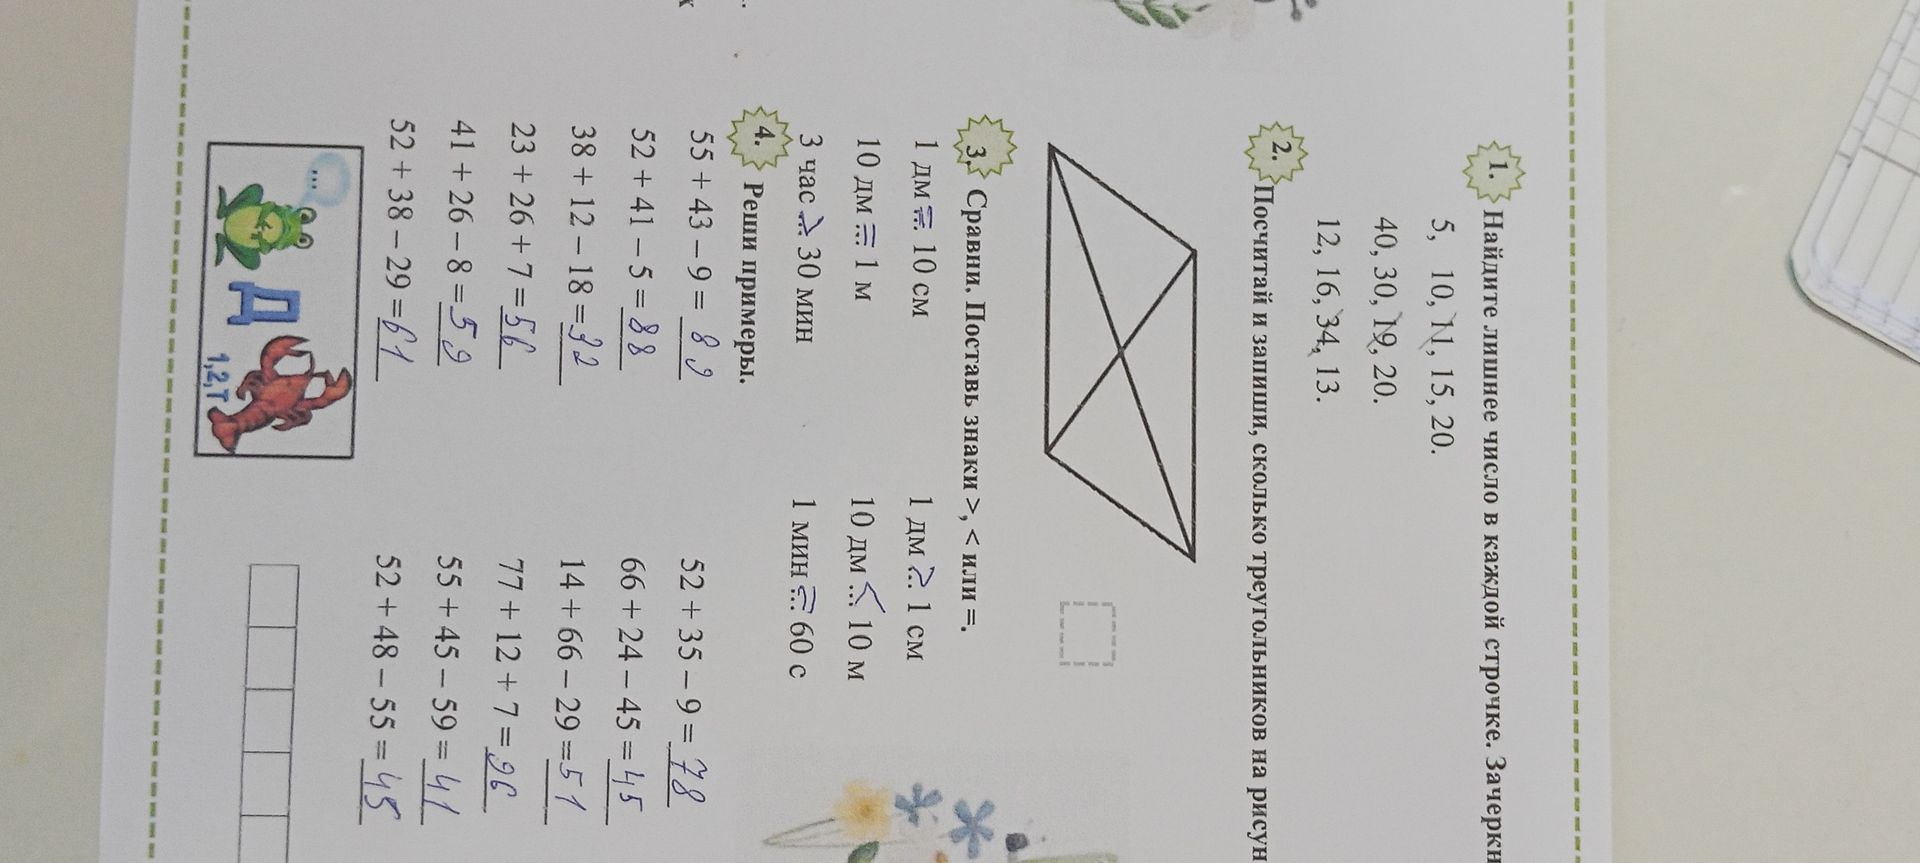 1. Найдите лишнее число в каждой строчке. Зачеркн
5, 10, 11, 15, 20.
40, 30, 19, 20.
12, 16, 34, 13.
2. Посчитай и запиши, сколько треугольников на рисун
3. Сравни. Поставь знаки >, < или =.
1 дм = 10 см 1 дм > 1 см
10 дм = 1 м 10 дм < 10 м
3 час > 30 мин 1 мин = 60 с
4. Реши примеры.
55 + 43 – 9 = 89 52 + 35 – 9 = 78
52 + 41 – 5 = 88 66 + 24 – 45 = 45
38 + 12 – 18 = 32 14 + 66 – 29 = 51
23 + 26 + 7 = 56 77 + 12 + 7 = 96
41 + 26 – 8 = 59 55 + 45 – 59 = 41
52 + 38 – 29 = 61 52 + 48 – 55 = 45
... Д 1,2,Т